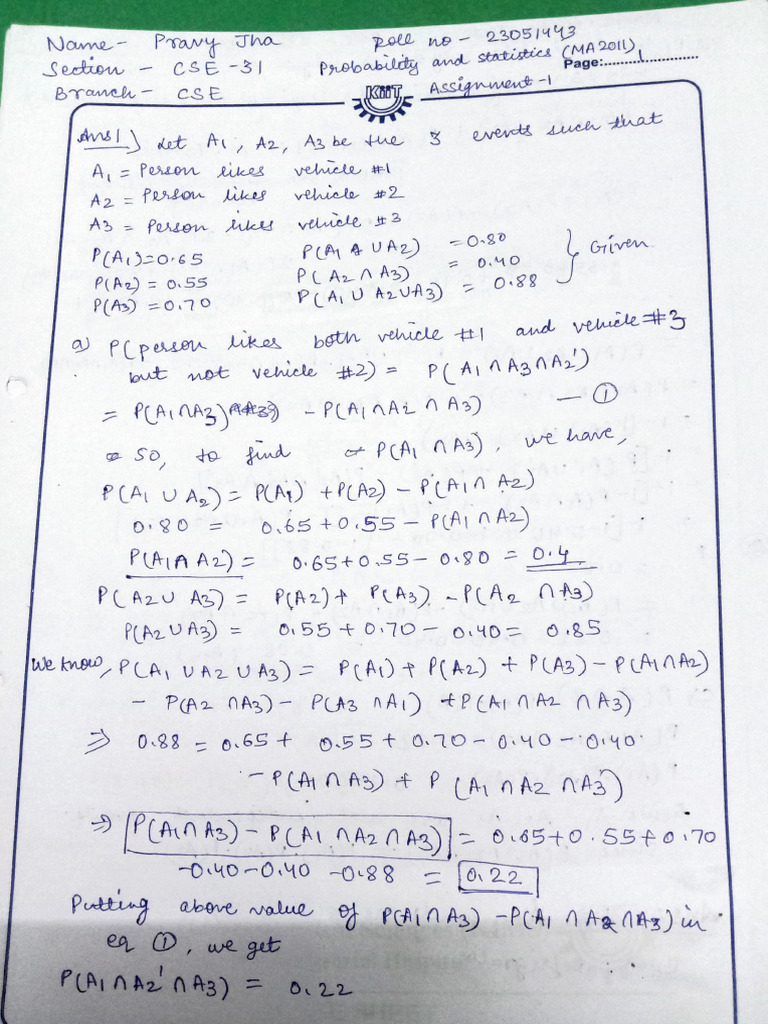 Name- Pravy Jha Roll no - 23051443
Section - CSE -31 Probability and statistics (MA2011)
Page:...........1...........
Branch - CSE Assignment -1
KIIT
Ans1) Let A1, A2, A3 be the 3 events such that
A1 = Person likes vehicle #1
A2 = Person likes vehicle #2
A3 = Person likes vehicle #3
P(A1)=0.65 P(A1 ∪ A2) = 0.80
P(A2) = 0.55 P(A2 ∩ A3) = 0.40 } Given
P(A3) = 0.70 P(A1 ∪ A2 ∪ A3) = 0.88
a) P(person likes both vehicle #1 and vehicle #3
but not vehicle #2) = P(A1 ∩ A3 ∩ A2')
= P(A1 ∩ A3) - P(A1 ∩ A2 ∩ A3) — ①
So, to find P(A1 ∩ A3), we have,
P(A1 ∪ A2) = P(A1) + P(A2) - P(A1 ∩ A2)
0.80 = 0.65 + 0.55 - P(A1 ∩ A2)
P(A1 ∩ A2) = 0.65 + 0.55 - 0.80 = 0.4
P(A2 ∪ A3) = P(A2) + P(A3) - P(A2 ∩ A3)
P(A2 ∪ A3) = 0.55 + 0.70 - 0.40 = 0.85
We know, P(A1 ∪ A2 ∪ A3) = P(A1) + P(A2) + P(A3) - P(A1 ∩ A2)
- P(A2 ∩ A3) - P(A3 ∩ A1) + P(A1 ∩ A2 ∩ A3)
⇒ 0.88 = 0.65 + 0.55 + 0.70 - 0.40 - 0.40
- P(A1 ∩ A3) + P(A1 ∩ A2 ∩ A3)
⇒ P(A1 ∩ A3) - P(A1 ∩ A2 ∩ A3) = 0.65 + 0.55 + 0.70
- 0.40 - 0.40 - 0.88 = 0.22
Putting above value of P(A1 ∩ A3) - P(A1 ∩ A2 ∩ A3) in
eq ①, we get
P(A1 ∩ A2' ∩ A3) = 0.22